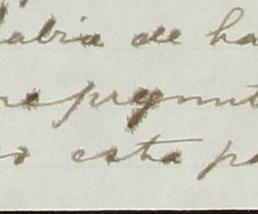 abia de ha
me pregunt
o esta p